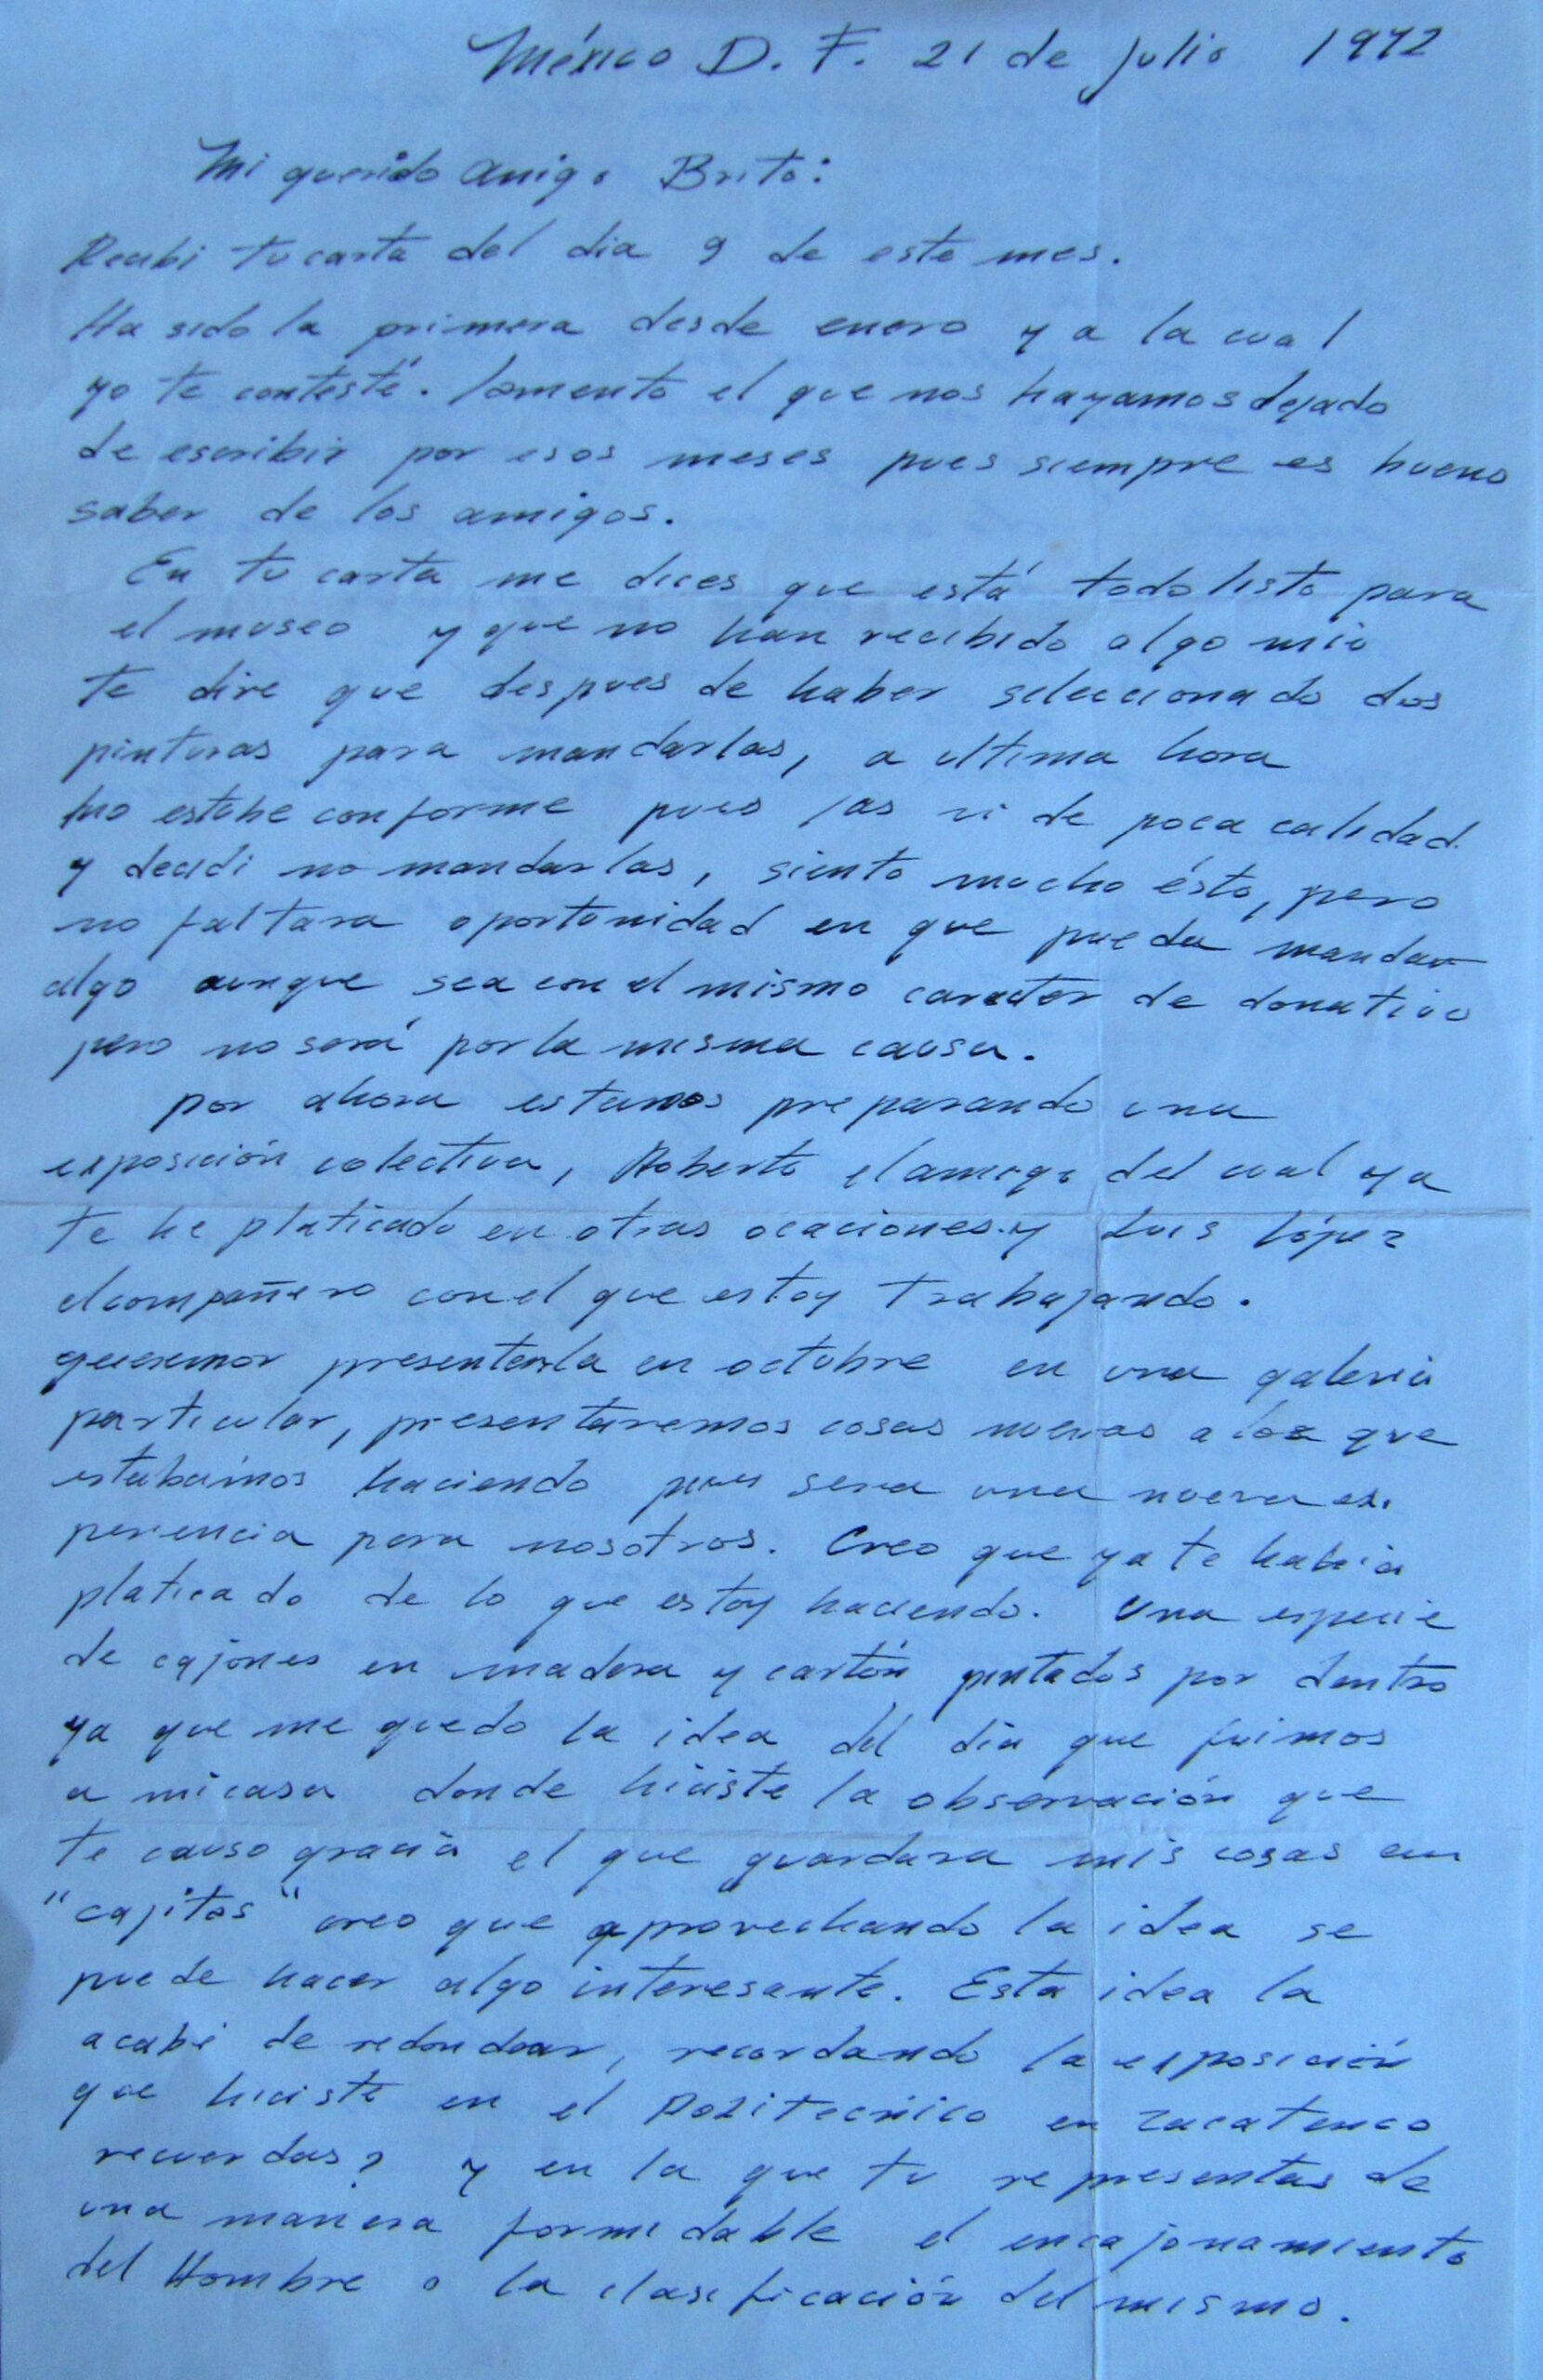 México D. F. 21 de julio 1972
Mi querido amigo Brito:
Recibi tu carta del dia 9 de este mes.
Ha sido la primera desde enero y a la cual
yo te contesté. lamento el que nos hayamos dejado
de escribir por esos meses pues siempre es bueno
saber de los amigos.
En tu carta me dices que está todo listo para
el museo y que no han recibido algo mio
te dire que despues de haber seleccionado dos
pinturas para mandarlas, a ultima hora
no estube conforme pues las vi de poca calidad
y decidi no mandarlas, siento mucho ésto, pero
no faltara oportunidad en que pueda mandar
algo aunque sea con el mismo caracter de donativo
pero no será por la misma causa.
por ahora estamos preparando una
exposición colectiva, Roberto el amigo del cual ya
te he platicado en otras ocaciones y Luis López
el compañero con el que estoy trabajando.
queremos presentarla en octubre en una galeria
particular, presentaremos cosas nuevas a las que
estabamos haciendo pues sera una nueva ex.
periencia para nosotros. Creo que ya te habia
platicado de lo que estoy haciendo. Una especie
de cajones en madera y cartón pintados por dentro
ya que me quedo la idea del dia que fuimos
a mi casa donde hiciste la observación que
te causo gracia el que guardara mis cosas en
"cajitas" creo que aprovechando la idea se
puede hacer algo interesante. Esta idea la
acabé de redondear, recordando la exposición
que hiciste en el Politecnico en Zacatenco
recuerdas? y en la que tu representas de
una manera formidable el encajonamiento
del Hombre o la clasificación del mismo.